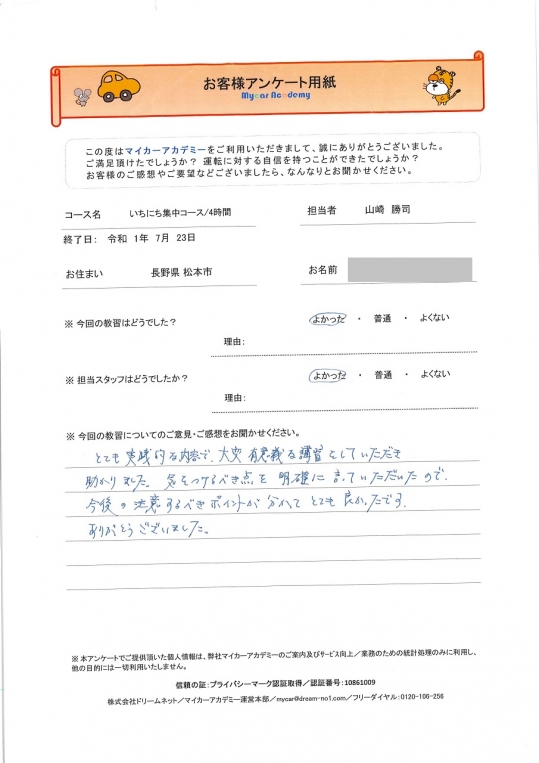 お客様アンケート用紙
Mycar Academy
この度はマイカーアカデミーをご利用いただきまして、誠にありがとうございました。
ご満足頂けたでしょうか? 運転に対する自信を持つことができたでしょうか?
お客様のご感想やご要望などございましたら、なんなりとお聞かせください。
コース名 いちにち集中コース/4時間 担当者 山崎 勝司
終了日: 令和 1年 7月 23日
お住まい 長野県 松本市 お名前
※ 今回の教習はどうでした? よかった ・ 普通 ・ よくない
理由:
※ 担当スタッフはどうでしたか? よかった ・ 普通 ・ よくない
理由:
※ 今回の教習についてのご意見・ご感想をお聞かせください。
とても実践的な内容で、大変有意義な講習をしていただき
助かりました。気をつけるべき点を明確に言っていただいたので、
今後の注意するべきポイントが分かってとても良かったです。
ありがとうございました。
※ 本アンケートでご提供頂いた個人情報は、弊社マイカーアカデミーのご案内及びサービス向上/業務のための統計処理のみに利用し、
他の目的には一切利用いたしません。
信頼の証:プライバシーマーク認証取得/認証番号:10861009
株式会社ドリームネット/マイカーアカデミー運営本部/mycar@dream-no1.com/フリーダイヤル:0120-106-256